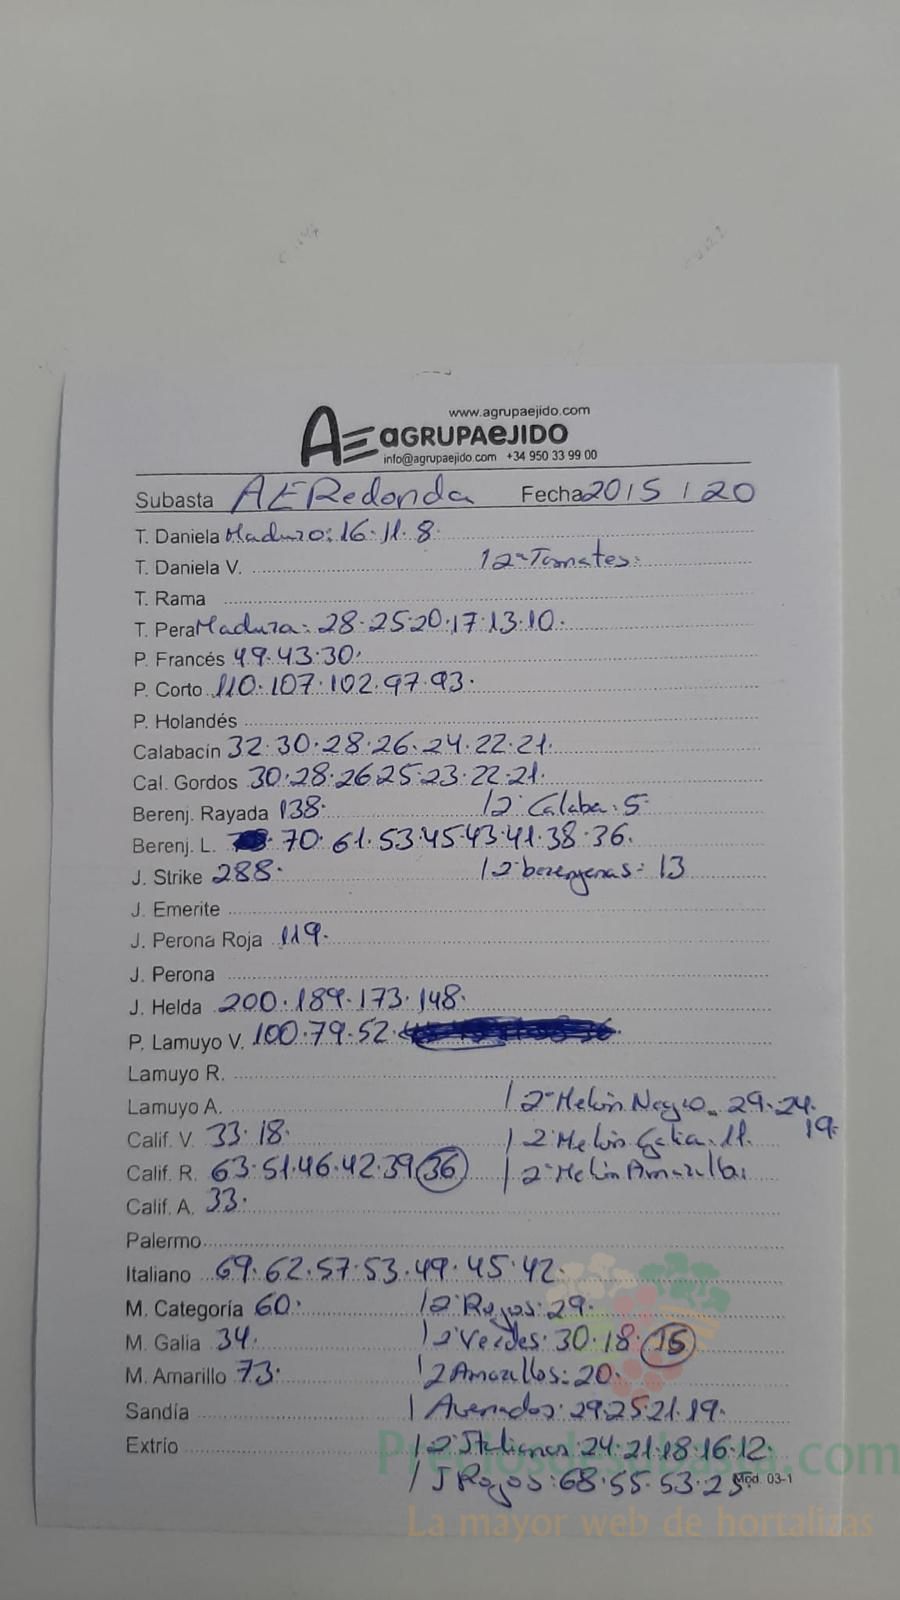 www.agrupaejido.com
AE aGRUPAeJIDO
info@agrupaejido.com +34 950 33 99 00
Subasta AE Redonda Fecha 20/5/20
T. Daniela Maduro: 16.11.8.
T. Daniela V. | 2ª Tomates:
T. Rama
T. Pera Madura: 28.25.20.17.13.10.
P. Francés 49.43.30.
P. Corto 110.107.102.97.93.
P. Holandés
Calabacín 32.30.28.26.24.22.21.
Cal. Gordos 30.28.26.25.23.22.21.
Berenj. Rayada 138. | 2ª Calaba: 5
Berenj. L. 70.61.53.45.43.41.38.36.
J. Strike 288. | 2ª berenjenas: 13
J. Emerite
J. Perona Roja 119.
J. Perona
J. Helda 200.189.173.148.
P. Lamuyo V. 100.79.52.
Lamuyo R.
Lamuyo A. | 2ª Melón Negro. 29.24.
19.
Calif. V. 33.18. | 2ª Melón Galia. 11.
Calif. R. 63.51.46.42.39 36 | 2ª Melón Amarillo.
Calif. A. 33.
Palermo
Italiano 69.62.57.53.49.45.42.
M. Categoría 60. | 2ª Rojos: 29.
M. Galia 34. | 2ª Verdes: 30.18. 15
M. Amarillo 73. | 2 Amarillos: 20.
Sandía | Asenados: 29.25.21.19.
Extrío | 2ª Italianos: 24.21.18.16.12.
| J Rojos: 68.55.53.25. Mod. 03-1
Preciosdesubasta.com
La mayor web de hortalizas